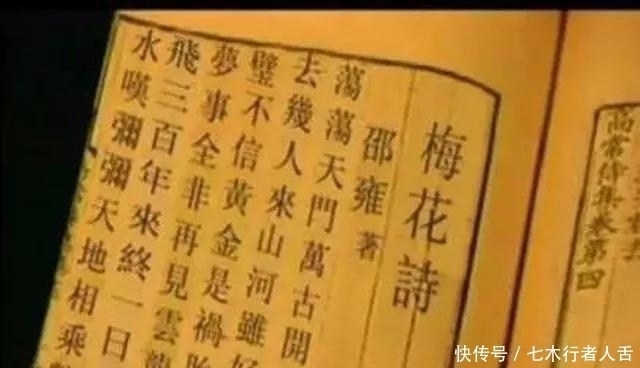 高常侍集卷第四
梅花詩
邵雍著
蕩蕩天門萬古開
去幾人來山河雖好
璧不信黃金是禍
夢事全非再見雲龍
飛三百年來終一日
水嘆彌彌天地相乘
快传号/七木行者人舌